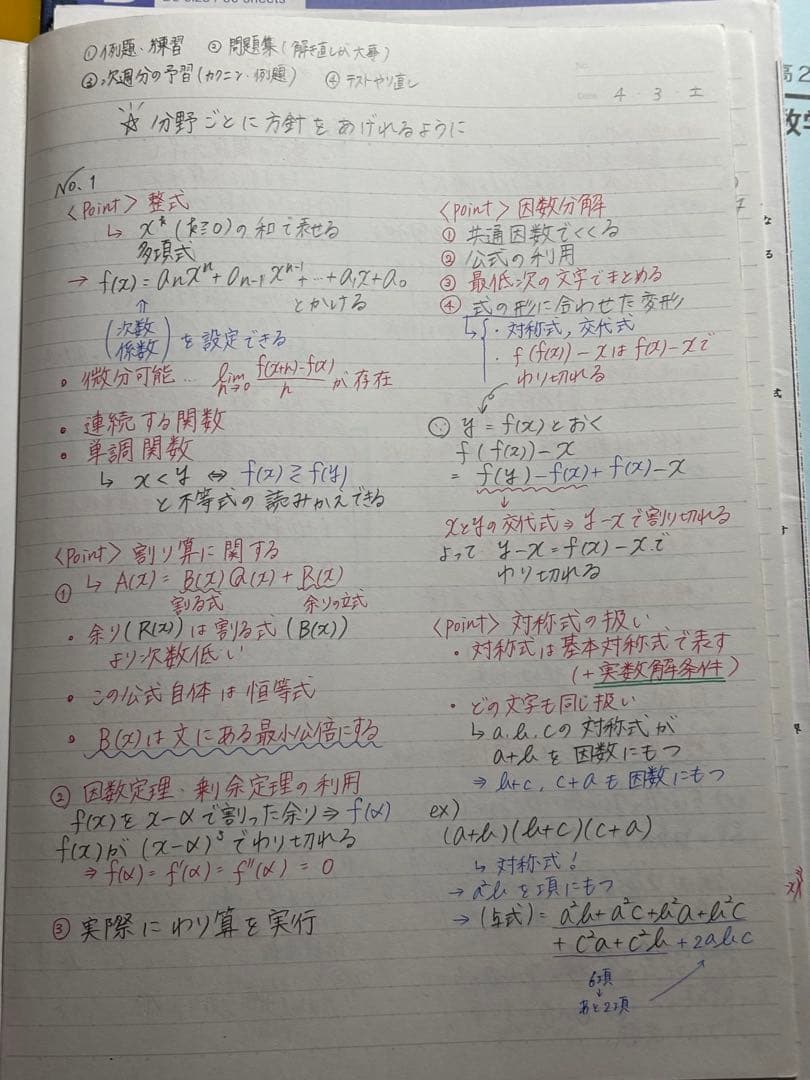 ①例題、練習 ② 問題集(解き直しが大事)
③次週分の予習(カクニン・例題) ④ テストやり直し
No.
Date 4・3・土
☆ 分野ごとに方針をあげれるように
No.1
<Point> 整式
↳ x^k (k≧0)の和で表せる
多項式
→ f(x)=a_nx^n+a_{n-1}x^{n-1}+…+a_1x+a_0
とかける
⇑
(次数 係数) を設定できる
• 微分可能… lim_{h→0} (f(x+h)-f(x))/h が存在
• 連続する関数
• 単調関数
↳ x<y ⇔ f(x)≷f(y)
と不等式の読みかえできる
<Point> 割り算に関する
① ↳ A(x)= B(x)Q(x)+ R(x)
割る式 余りの立式
• 余り(R(x))は割る式(B(x))
より次数低い
• この公式自体は恒等式
• B(x)は文にある最小公倍にする
② 因数定理・剰余定理の利用
f(x)をx-αで割った余り⇒f(α)
f(x)が(x-α)^3でわり切れる
⇒f(α)=f'(α)=f''(α)=0
③ 実際にわり算を実行
<Point> 因数分解
① 共通因数でくくる
② 公式の利用
③ 最低次の文字でまとめる
④ 式の形に合わせた変形
↳{・対称式、交代式
・f(f(x))-xはf(x)-xで
わり切れる
∵ y=f(x)とおく
f(f(x))-x
= f(y)-f(x)+f(x)-x
↓
xとyの交代式⇒y-xで割り切れる
よって y-x=f(x)-xで
わり切れる
<Point> 対称式の扱い
• 対称式は基本対称式で表す
(+実数解条件)
• どの文字も同じ扱い
↳a,b,cの対称式が
a+bを因数にもつ
⇒b+c, c+aも因数にもつ
ex)
(a+b)(b+c)(c+a)
↳対称式!
→a²bを項にもつ
→(与式)=a²b+a²c+b²a+b²c
+c²a+c²b+2abc
6項
↓
あと2項
高2
数学